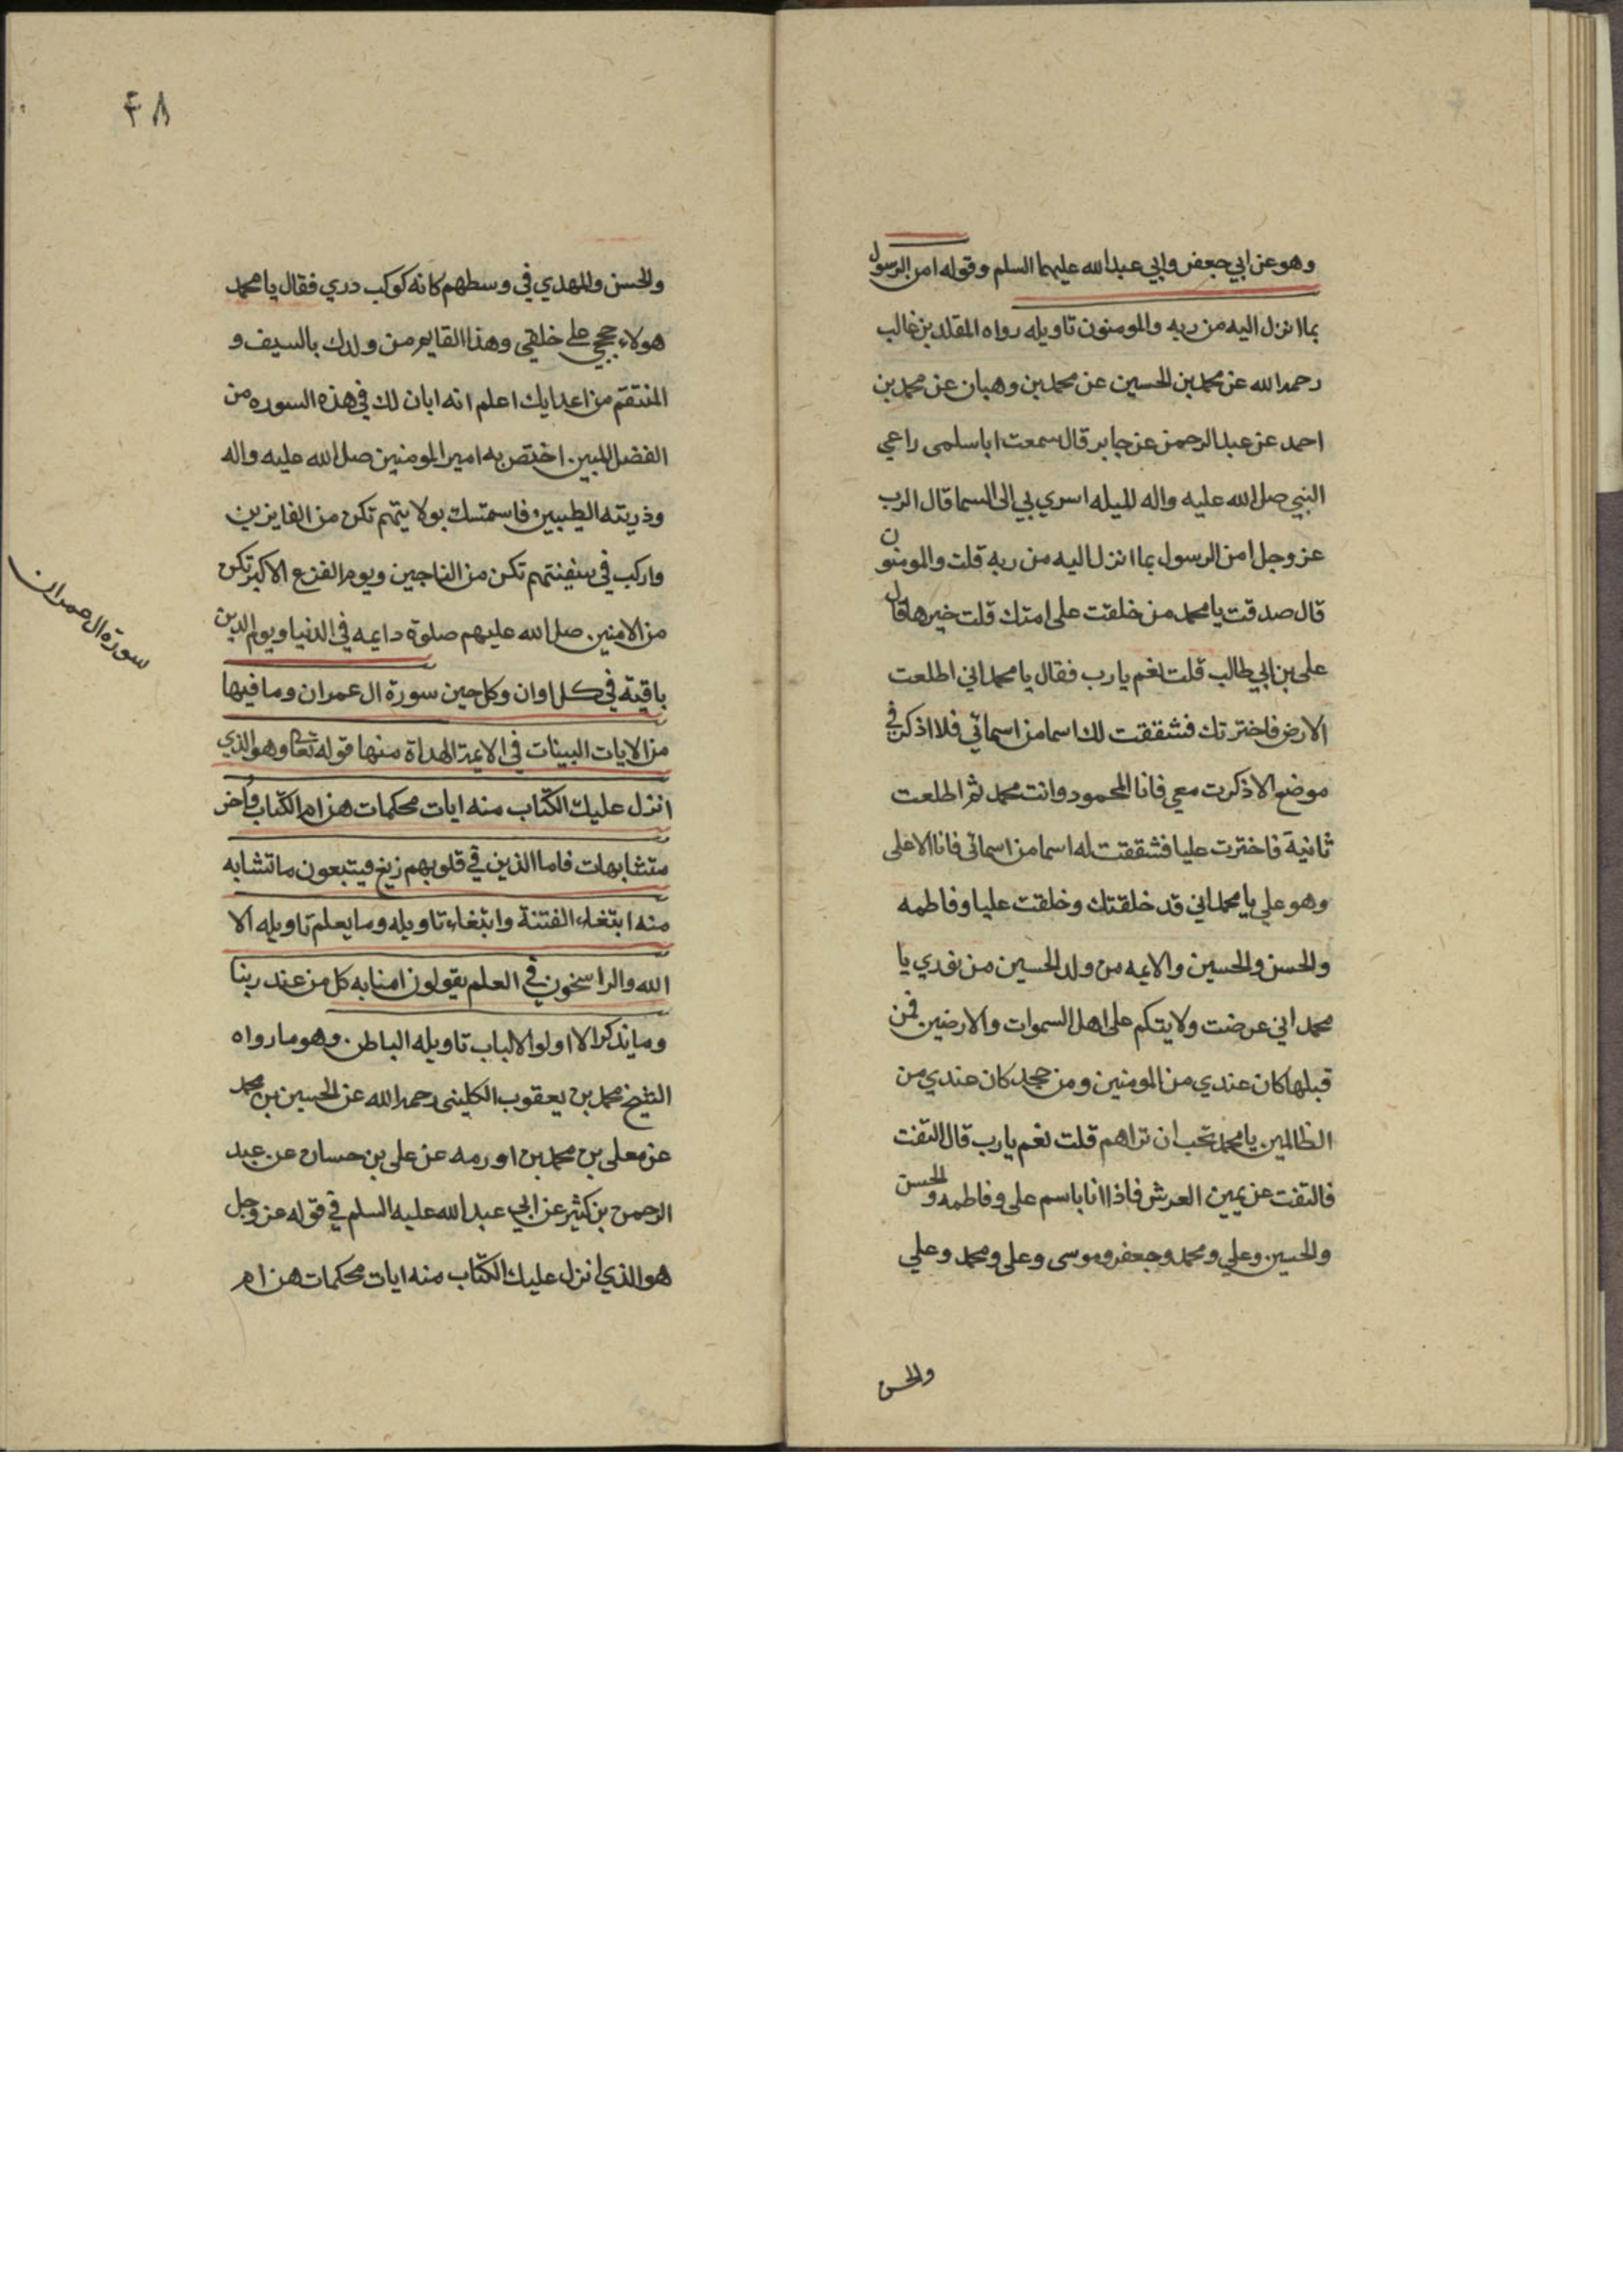 وهو عن ابي جعفر وابي عبدالله عليهما السلم وقوله امن الرسول
بما انزل اليه من ربه والمومنون تاويله رواه المقلد بن غالب
رحمه الله عن محمد بن الحسين عن محمد بن وهبان عن محمد بن
احمد عن عبد الرحمن عن جابر قال سمعت ابا سلمى راعي
النبي صلى الله عليه واله لليله اسري بي الى السما قال الرب
عز وجل امن الرسول بما انزل اليه من ربه قلت والمومنون
قال صدقت يا محمد من خلفت على امتك قلت خيرها قال
على بن ابي طالب قلت نعم يا رب فقال يا محمد اني اطلعت
الارض فاخترتك فشققت لك اسما من اسمائي فلا اذكر في
موضع الا ذكرت معي فانا المحمود وانت محمد ثم اطلعت
ثانية فاخترت عليا فشققت له اسما من اسمائي فانا الاعلى
وهو علي يا محمد اني قد خلقتك وخلقت عليا وفاطمه
والحسن والحسين والايمه من ولد الحسين من نوري يا
محمد اني عرضت ولايتكم على اهل السموات والارضين فمن
قبلها كان عندي من المومنين ومن جحد كان عندي من
الظالمين يا محمد تحب ان تراهم قلت نعم يا رب قال التفت
فالتفت عن يمين العرش فاذا انا باسم على وفاطمه والحسن
والحسين وعلي ومحمد وجعفر وموسى وعلى ومحمد وعلي
والحسن
٤٨
والحسن والمهدي في وسطهم كانه كوكب دري فقال يا محمد
هولاء حججي على خلقي وهذا القايم من ولدك بالسيف و
المنتقم من اعدايك اعلم انه ابان لك في هذه السوره من
الفضل المبين. اختص به امير المومنين صلى الله عليه واله
وذريته الطيبين فاستمسك بولايتهم تكن من الفايزين
واركب في سفينتهم تكن من الناجين ويوم الفزع الاكبر تكن
من الامنين. صلى الله عليهم صلوة دايمه في الدنيا ويوم الدين
باقية في كل اوان وكل حين سورة ال عمران وما فيها
من الايات البينات في الايمة الهداة منها قوله تعالى وهو الذي
انزل عليك الكتاب منه ايات محكمات هن ام الكتاب وأخر
متشابهات فاما الذين في قلوبهم زيغ فيتبعون ما تشابه
منه ابتغاء الفتنة وابتغاء تاويله وما يعلم تاويله الا
الله والراسخون في العلم يقولون امنا به كل من عند ربنا
وما يذكر الا اولوا الالباب تاويله الباطن. وهو ما رواه
الشيخ محمد بن يعقوب الكليني رحمه الله عن الحسين بن محمد
عن معلى بن محمد بن اورمه عن على بن حسان عن عبد
الرحمن بن كثير عن ابي عبدالله عليه السلم في قوله عز وجل
هو الذي انزل عليك الكتاب منه ايات محكمات هن ام
سورة ال عمران